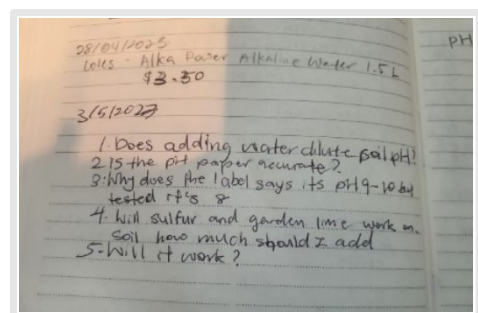 28/04/2023
Coles - Alka Power Alkaline Water 1.5L
$3.50
3/5/2023
1. Does adding water dilute soil pH?
2. IS the pH paper accurate?
3. Why does the label says its pH 9-10 but
tested it's 8
4. Will sulfur and garden lime work on
Soil how much should I add
5. Will it work?
PH